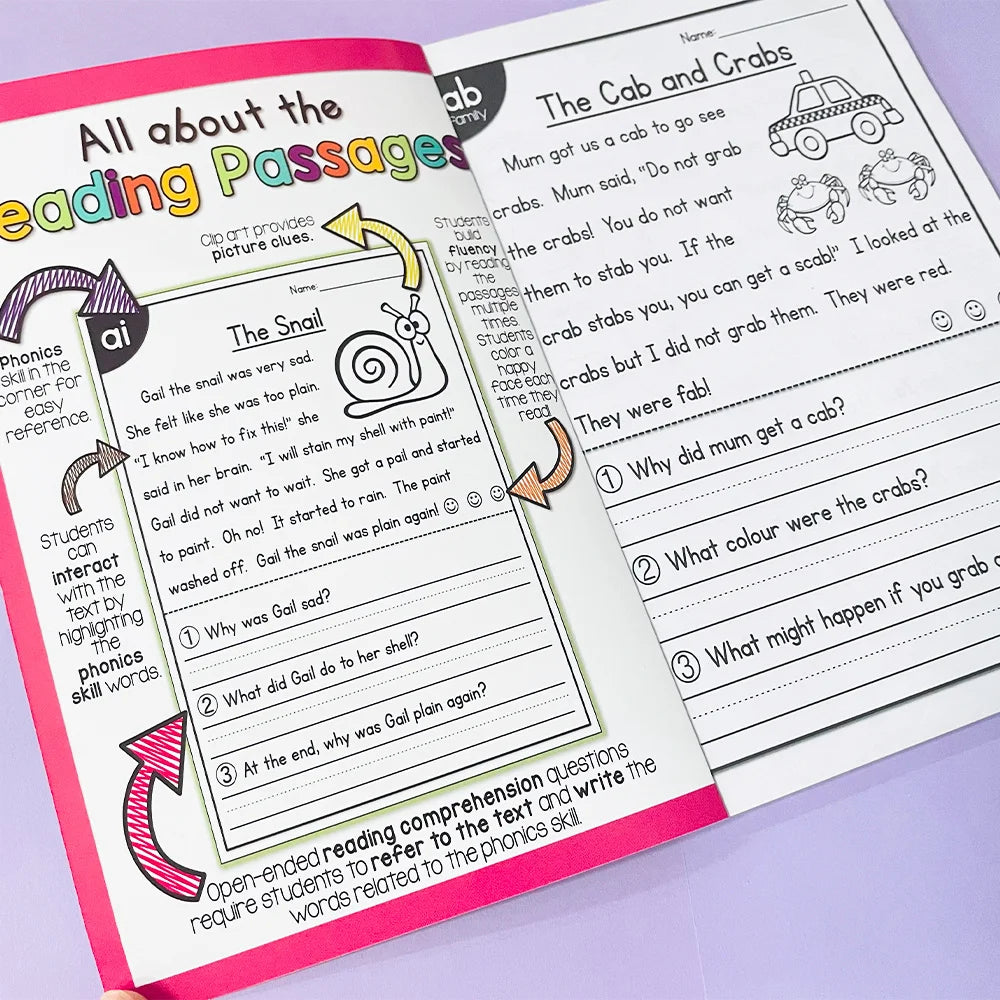 All about the
eading Passages
Clip art provides
picture clues.
Students
build
fluency
by reading
the
passages
multiple
times.
Students
color a
happy
face each
time they
read!
Phonics
skill in the
corner for
easy
reference.
Students
can
interact
with the
text by
highlighting
the
phonics
skill words.
ai
Name:
The Snail
Gail the snail was very sad.
She felt like she was too plain.
"I know how to fix this!" she
said in her brain. "I will stain my shell with paint!"
Gail did not want to wait. She got a pail and started
to paint. Oh no! It started to rain. The paint
washed off. Gail the snail was plain again!
1 Why was Gail sad?
2 What did Gail do to her shell?
3 At the end, why was Gail plain again?
Open-ended reading comprehension questions
require students to refer to the text and write the
words related to the phonics skill.
ab
Family
Name:
The Cab and Crabs
Mum got us a cab to go see
crabs. Mum said, "Do not grab
the crabs! You do not want
them to stab you. If the
crab stabs you, you can get a scab!" I looked at the
crabs but I did not grab them. They were red.
They were fab!
1 Why did mum get a cab?
2 What colour were the crabs?
3 What might happen if you grab